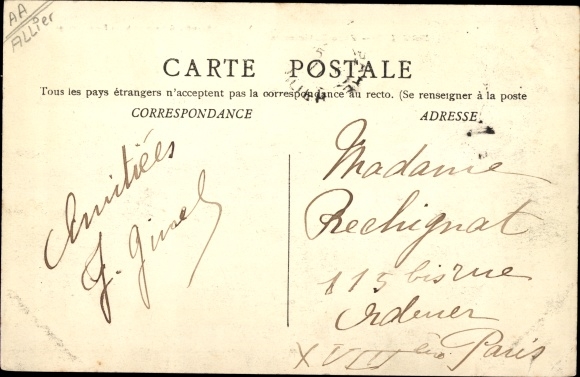 AA
ALLier
CARTE POSTALE
Tous les pays étrangers n'acceptent pas la correspondance au recto. (Se renseigner à la poste
CORRESPONDANCE
ADRESSE
Amitiées
J.
Madame
Rechignat
115 bis rue
Ordener
XVIII ème Paris